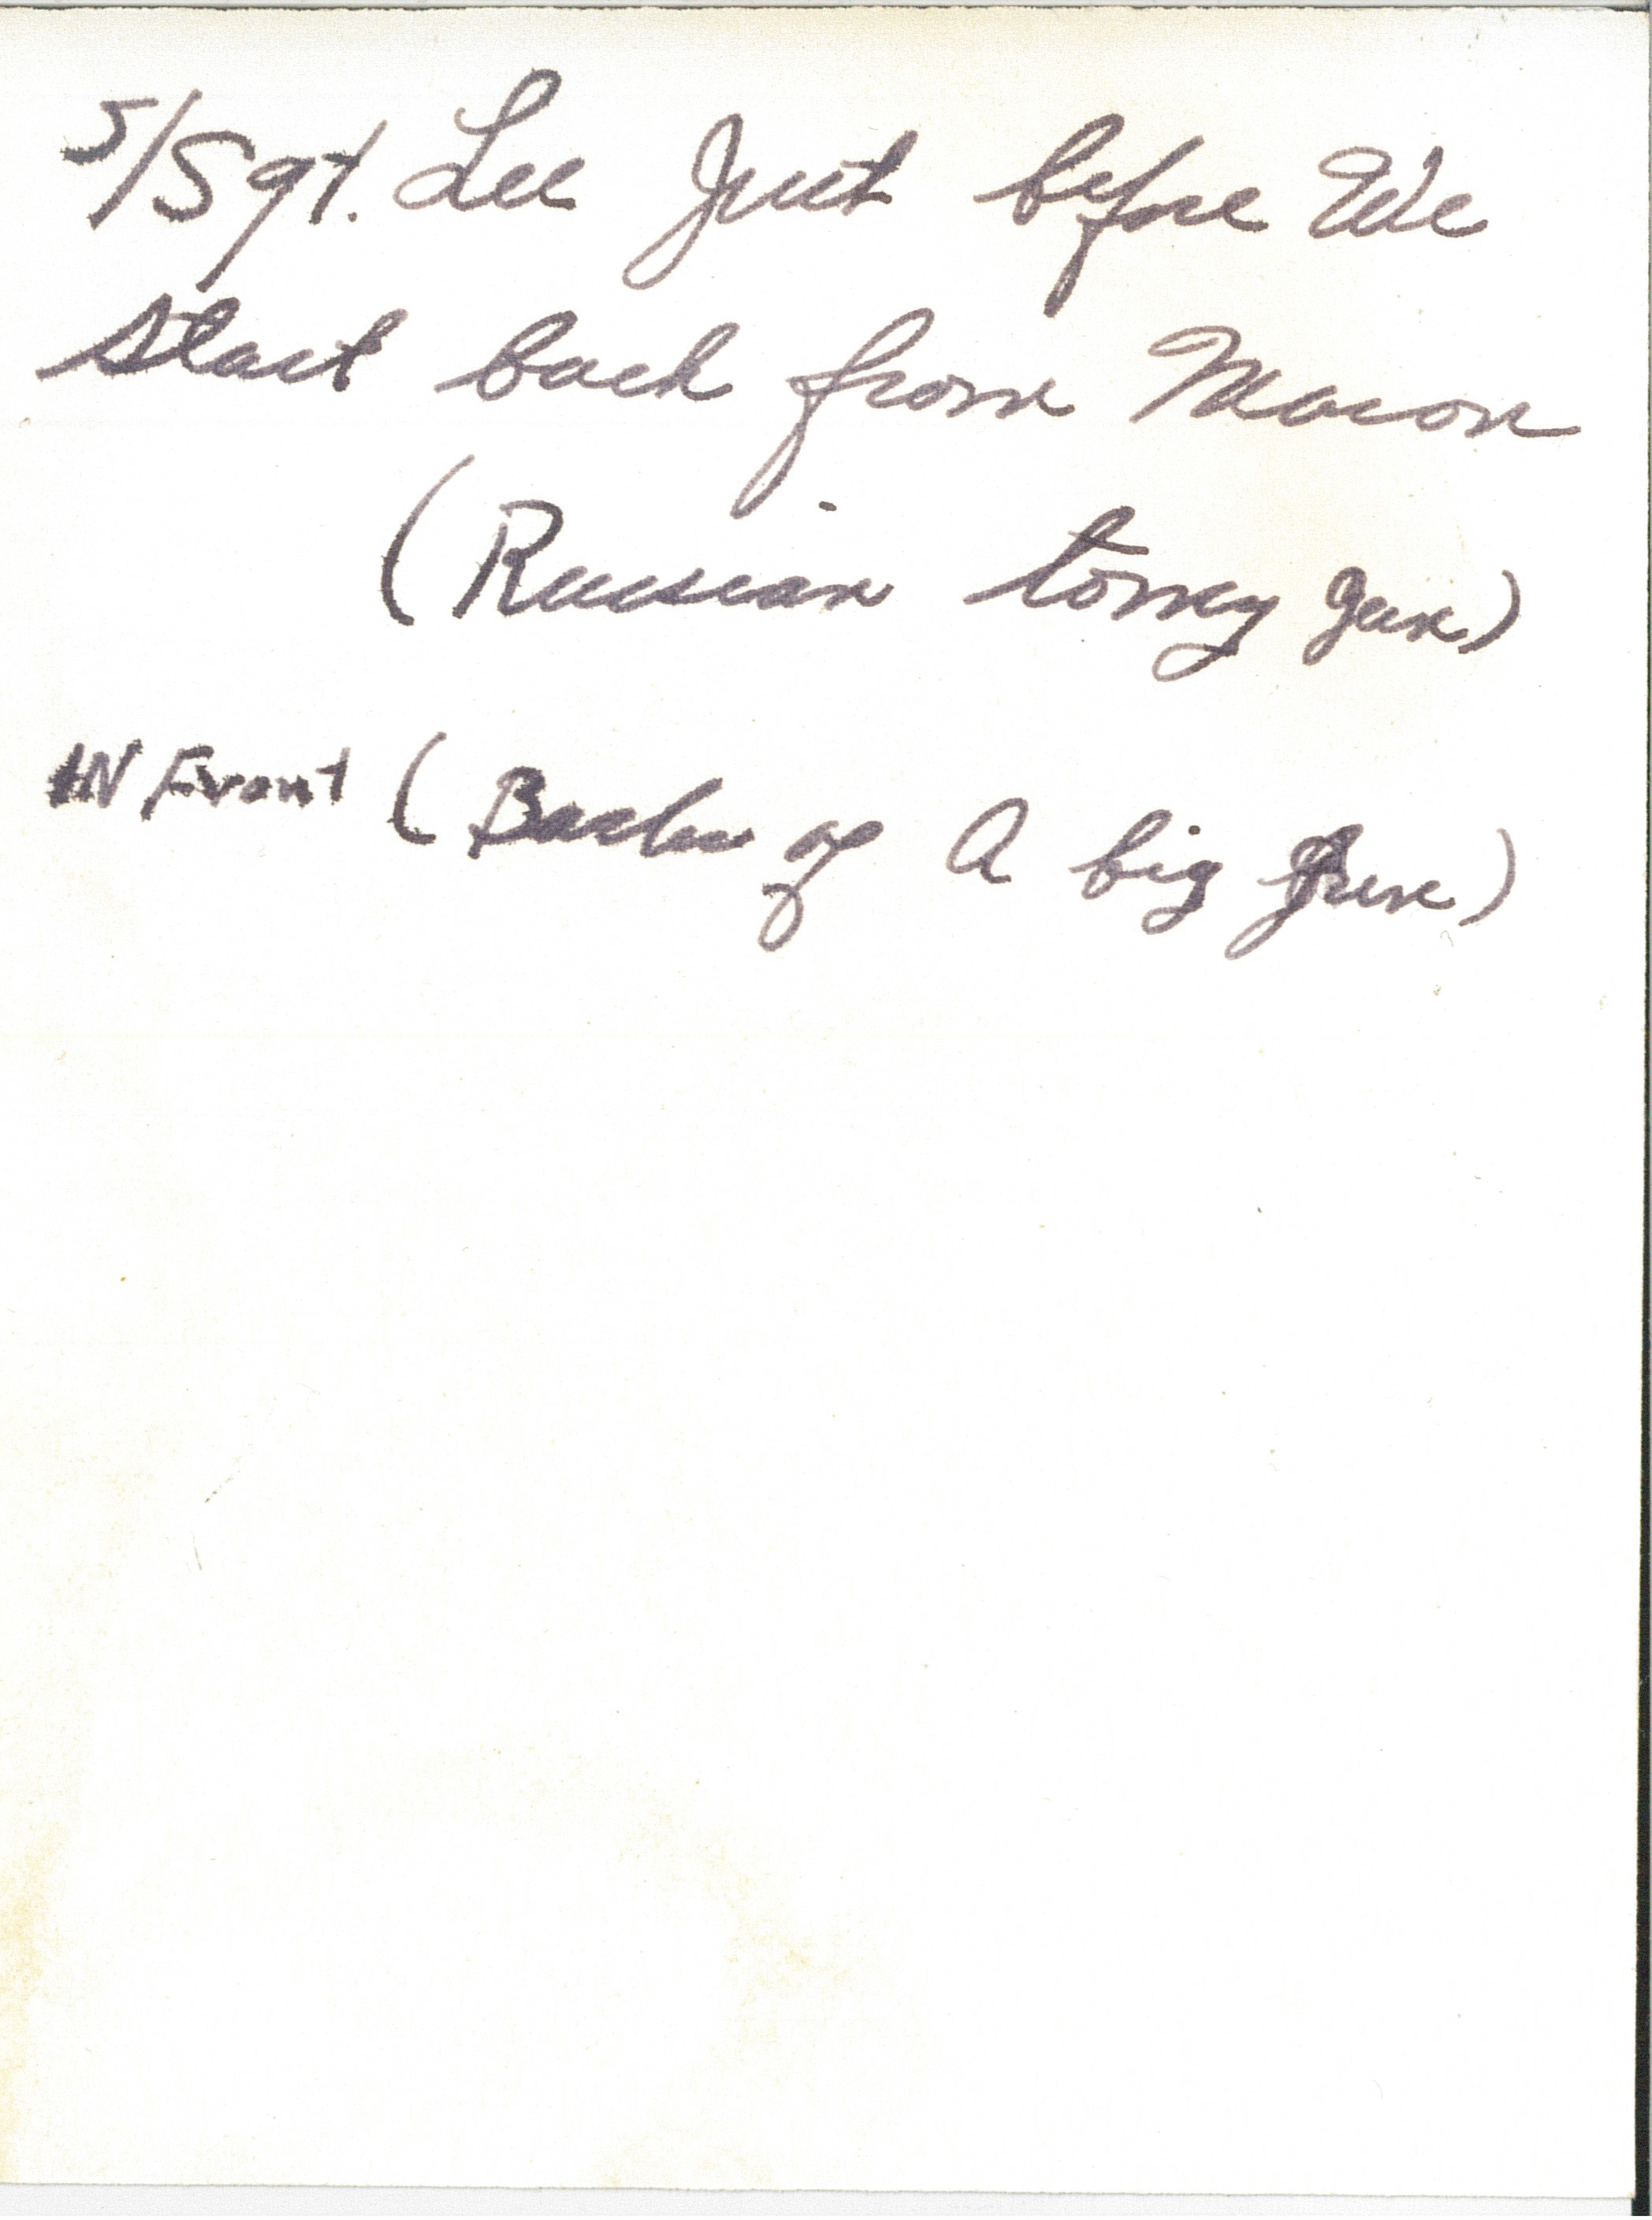 S/Sgt. Lee Just before We
start back from Macon
(Russian tomy gun)
IN Front ( of A big gun)